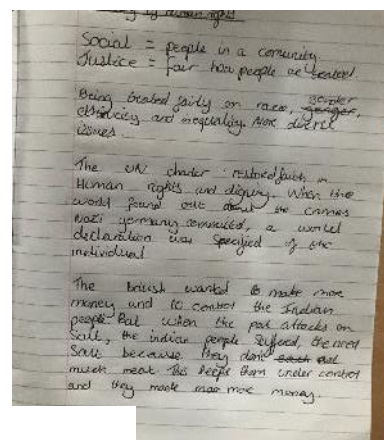 by human rights
Social = people in a comunity
Justice = fair how people are treated.
Being treated fairly on race, gender
ethnicity and inequality. More diverse
issues.
The UN charter restored faith in
Human rights and dignity. When the
world found out about the crimes
Nazi germany commited, a world
declaration was specified of the
individual
The british wanted to make more
money and to control the Indian
people. But when the put attacks on
salt, the indian people suffered, the need
Salt because they dont eat
much meat this keeps them under control
and they made more money.